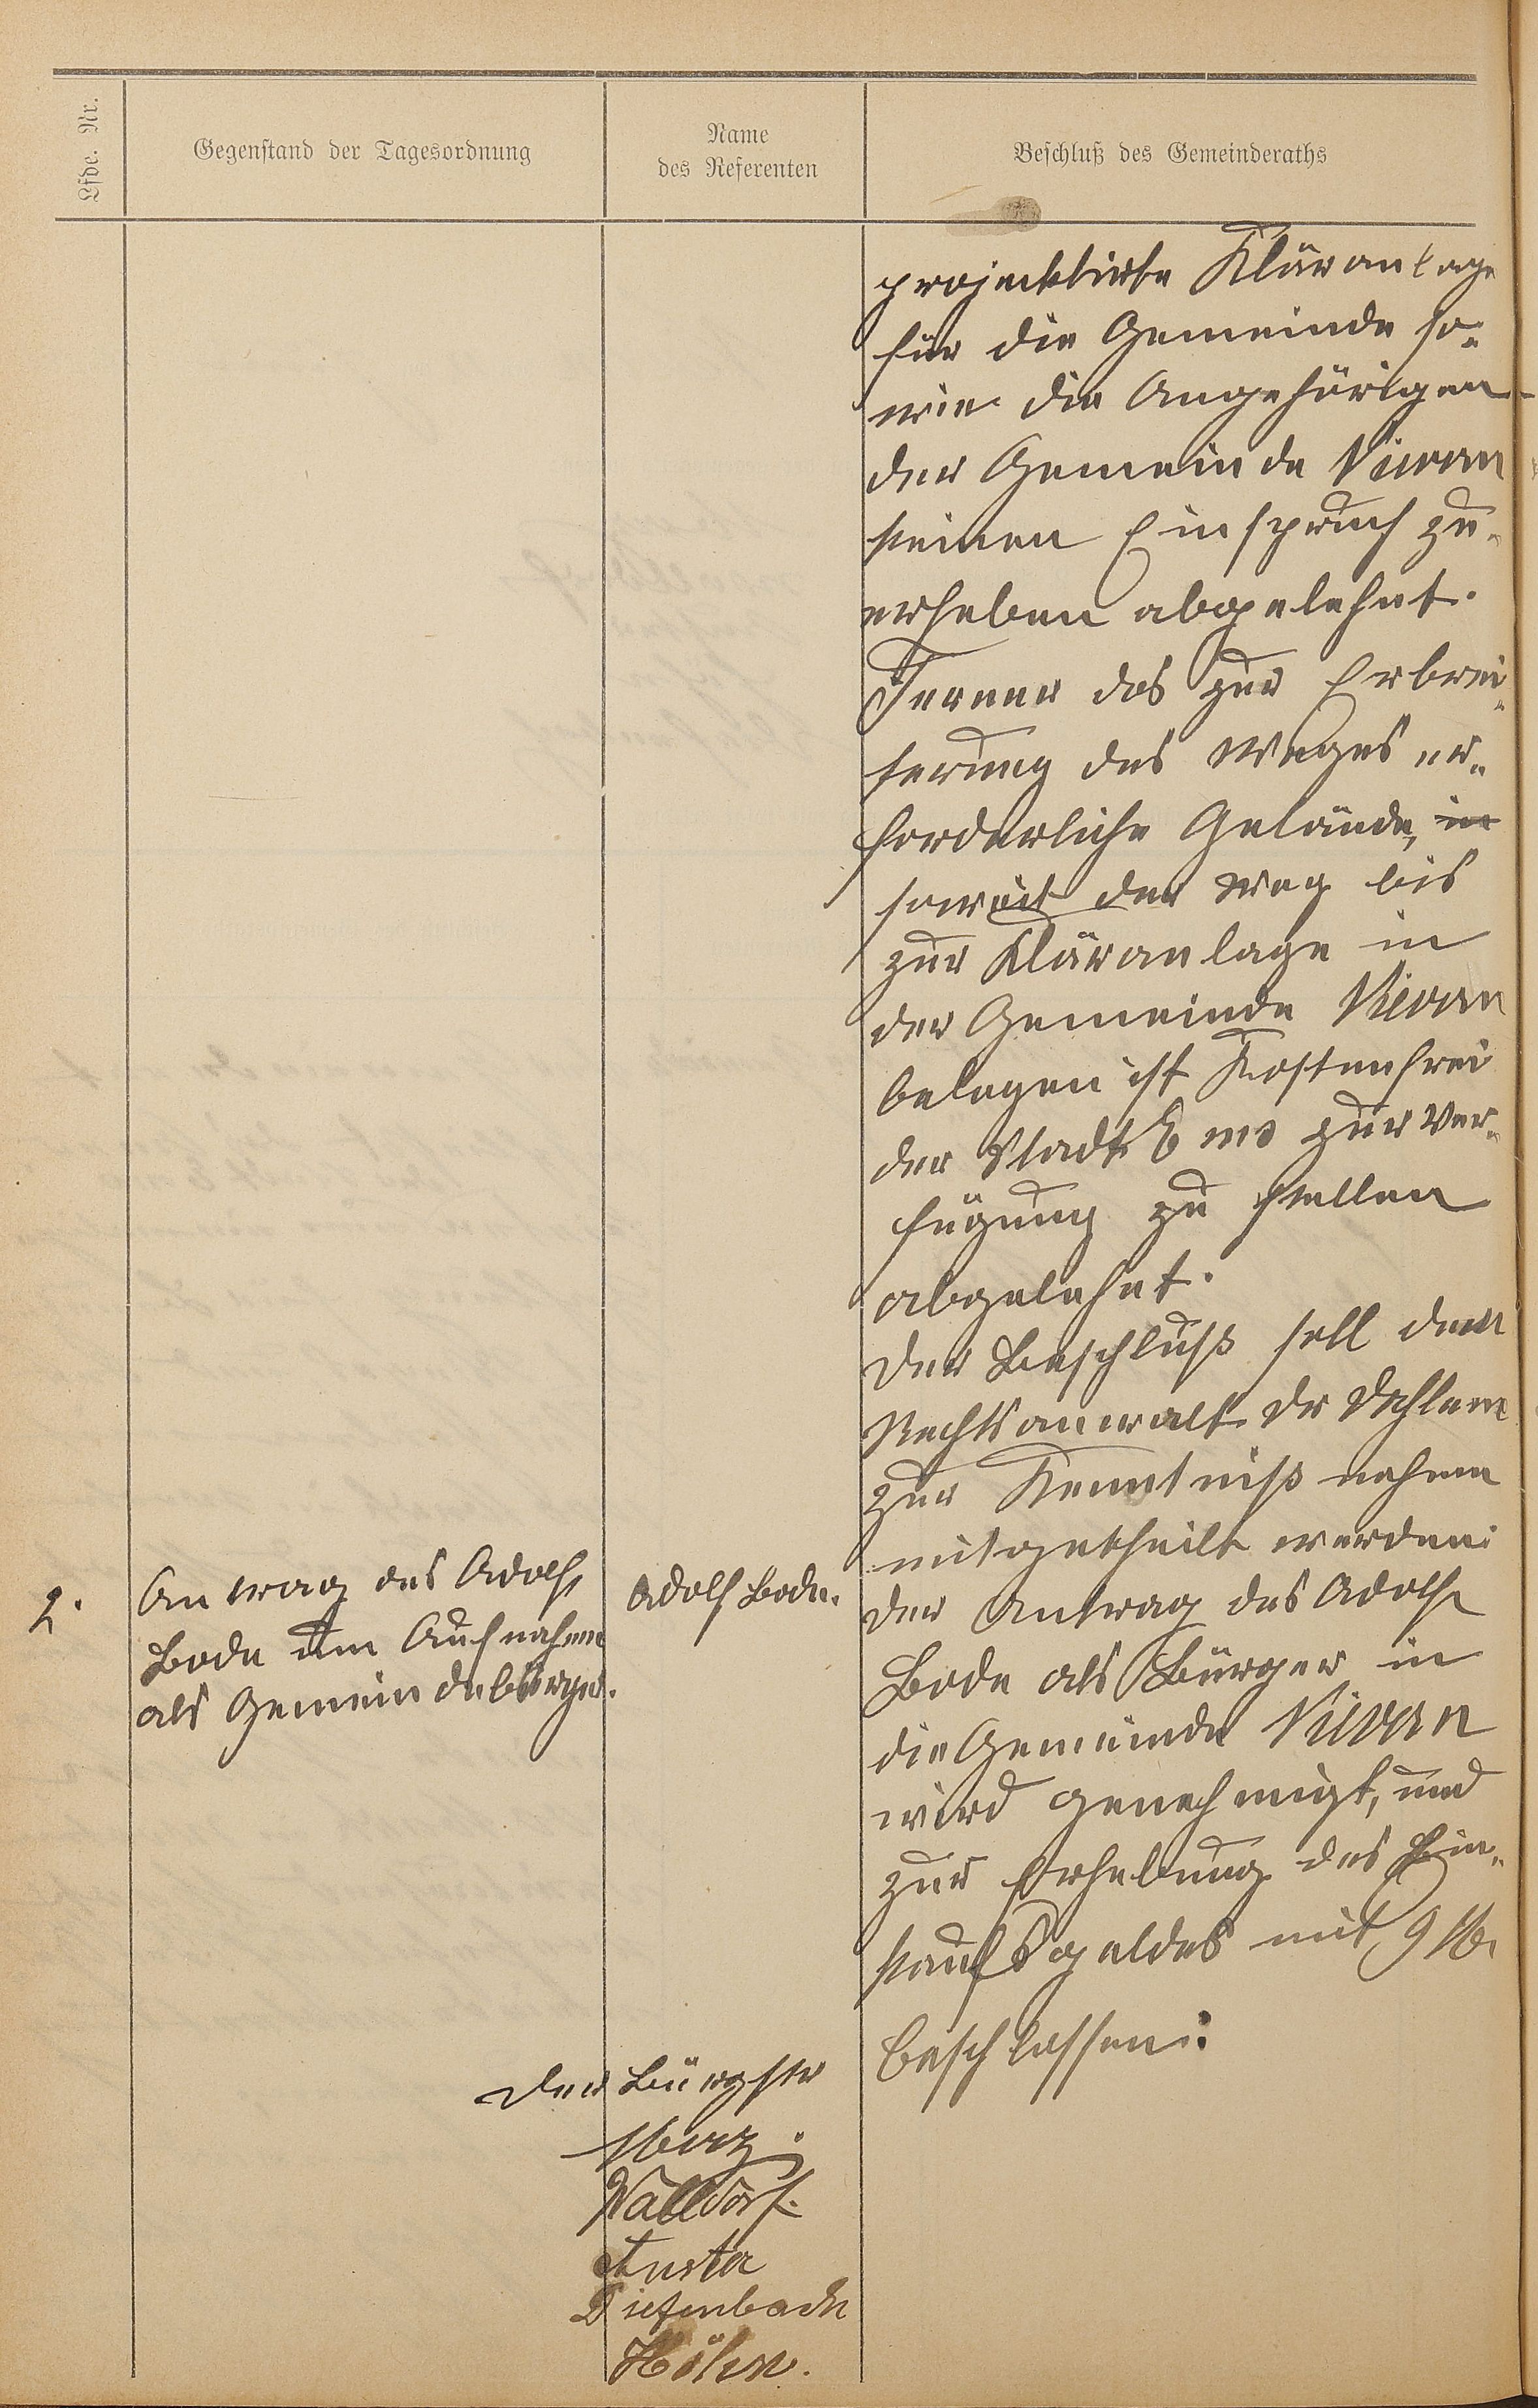 Lfde. Nr.
Gegenstand der Tagesordnung
Name
des Referenten
Beschluß des Gemeinderaths
projecktirte Kläranlage
für die Gemeinde so-
wie die Angehörigen
der Gemeinde Nievern
keinen Einspruch zu
erheben abgelehnt.
Ferner das zur Erbrei-
terung des Weges er-
forderliche Gelände, in
soweit der Weg bis
zur Kläranlage in
der Gemeinde Nievern
belegen ist Kostenfrei
der Stadt Ems zur Ver-
fügung zu stellen
abgelehnt.
Der Beschluß soll dem
Rechtsanwalt Dr Dahlem
zur Kenntniß nahme
mitgetheilt werden:
2.
Antrag des Adolf
Bode um Aufnahme
als Gemeindebürger.
Adolf Bode.
Der Antrag des Adolf
Bode als Bürger in
die Gemeinde Nievern
wird genehmigt, und
zur Erhebung des Ein-
kaufsgeldes mit 9 M.
beschlossen:
Der Bürgstr
Walldorf.
Diefenbach
Höhn.